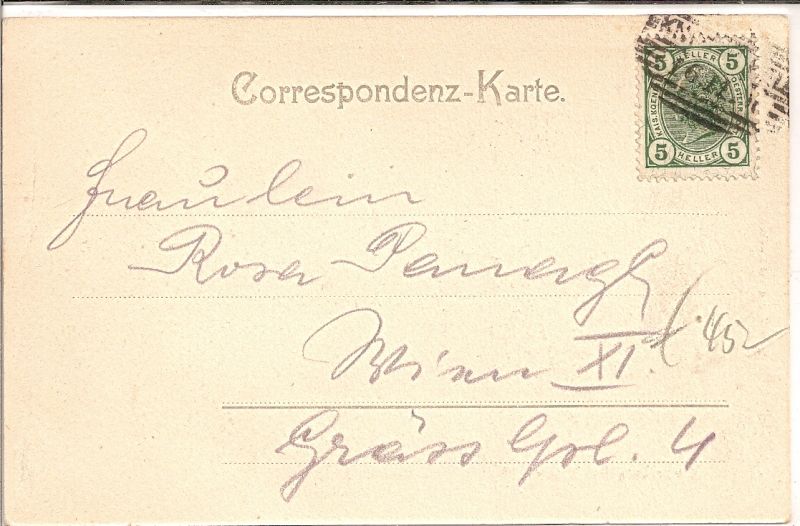 Correspondenz-Karte.
5 HELLER 5
KAIS. KOEN. OESTERR.
5 HELLER 5
Fräulein
Rosa
Wien XI.
452
4